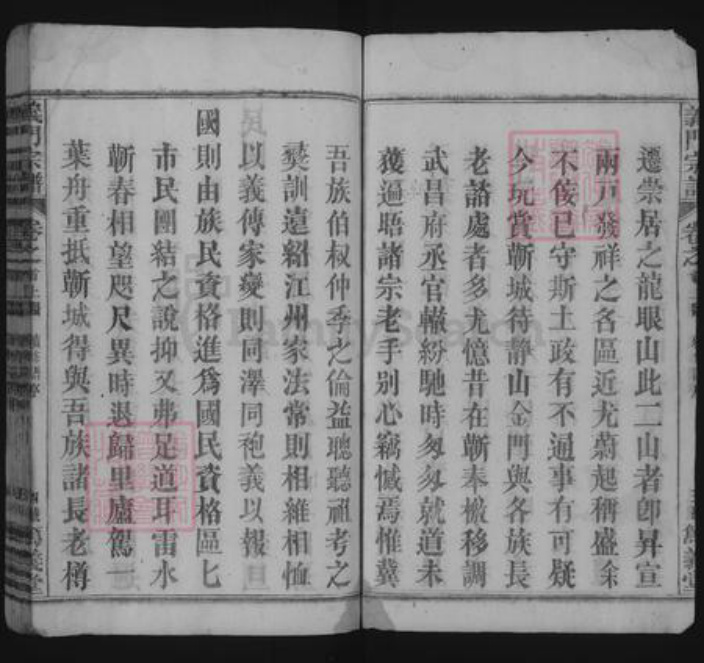 遷崇居之龍眼山此二山者卽昇宣
兩戶發祥之各區近尤蔚起稱盛余
不佞已守斯土政有不逼事有可疑
今玩賞蘄城待静山金門與各族長
老諮處者多尤憶昔在蘄奉檄移調
武昌府丞官轍紛馳時匆匆就道未
獲逼晤諸宗老手別心竊憾焉惟冀
吾族伯叔仲季之倫益聰聽祖考之
彝訓遠紹江州家法常則相維相恤
以義傳家變則同澤同袍義以報
國則由族民資格進爲國民資格區七
市民團結之說抑又弗足道耳雷水
蘄春相望咫尺異時退歸里廬駕一
葉舟重抵蘄城得與吾族諸長老樽
義門宗譜
卷之
篤義堂
FamilySearch